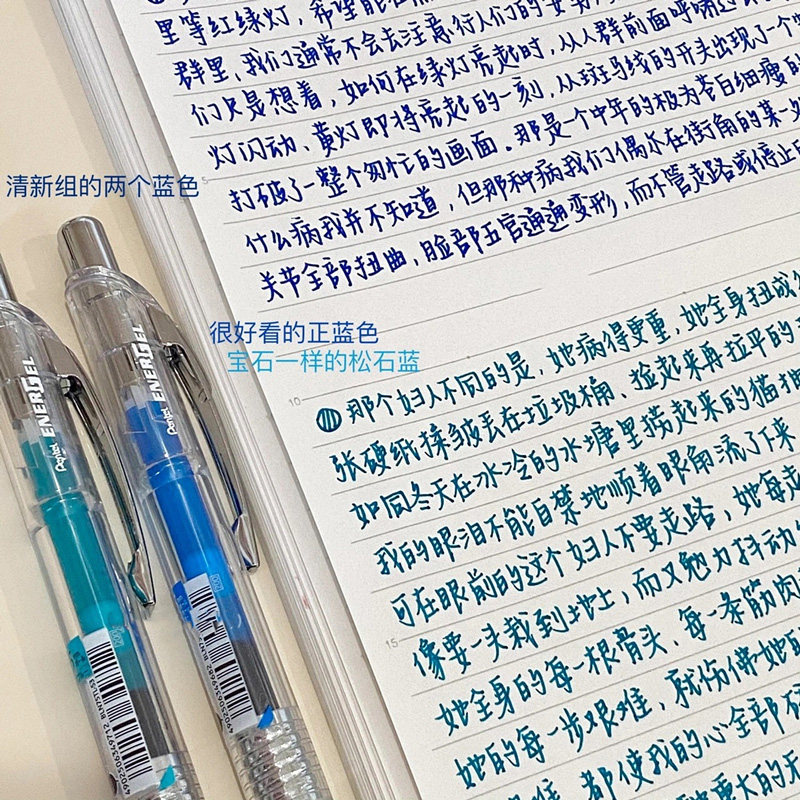 里等红绿灯，希望能在
群里，我们通常不会去注意行人们的
们只是想着，如何在绿灯亮起时，从人群前面呼啸过
灯闪动、黄灯即将亮起的一刻，从斑马线的开头出现了一个
打破了一整个匆忙的画面。那是一个中年的极为苍白细瘦的
什么病我并不知道，但那种病我们偶尔在街角的某一处
关节全部扭曲，脸部五官通通变形，而不管走路或停止的
清新组的两个蓝色
很好看的正蓝色
宝石一样的松石蓝
10
那个妇人不同的是，她病得更重，她全身扭成
张硬纸揉皱丢在垃圾桶、捡起来再拉平的
如同冬天在冰冷的水塘里捞起来的猫狗
我的眼泪不能自禁地顺着眼角流了下来
可在眼前的这个妇人不要走路，她每走
15
像要一头栽到地上，而又勉力抖动
她全身的每一根骨头、每一条筋肉
她的每一步艰难，就仿佛她的
都使我的心全部
重大的
Pentel ENERGEL
Pentel ENERGEL
4902506349712 BLN75TL-S3
4902506349682 BLN75TL